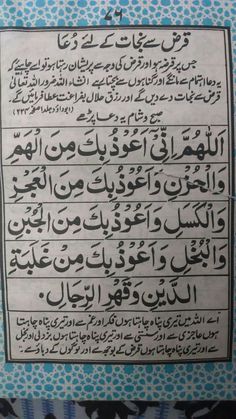 ۷۶
قرض سے نجات کے لئے دُعا
جس پر قرضہ ہو اور قرض کی وجہ سے پریشان رہتا ہو تو اسے چاہیئے کہ
یہ دعا اہتمام سے مانگے اور گناہوں سے بچتا رہے انشاءاللہ ضرور اللہ تعالیٰ
قرض سے نجات دے دیں گے اور رزق حلال بفراغت عطا فرمائیں گے
صبح و شام یہ دعا پڑھے
اَللّٰهُمَّ اِنِّیْۤ اَعُوْذُ بِكَ مِنَ الْهَمِّ
وَالْحُزْنِ وَاَعُوْذُ بِكَ مِنَ الْعَجْزِ
وَالْكَسَلِ وَاَعُوْذُ بِكَ مِنَ الْجُبْنِ
وَالْبُخْلِ وَاَعُوْذُ بِكَ مِنْ غَلَبَةِ
الدَّيْنِ وَقَهْرِ الرِّجَالِ۔
اے اللہ میں تیری پناہ چاہتا ہوں فکر اور غم سے اور تیری پناہ چاہتا
ہوں عاجزی سے اور سستی سے اور تیری پناہ چاہتا ہوں بزدلی اور بخل
سے اور تیری پناہ چاہتا ہوں قرض کے بوجھ سے اور لوگوں کے دباؤ سے۔